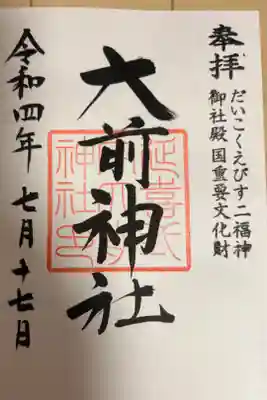 奉拝
だいこくえびす二福神
御社殿国重要文化財
大前神社
令和四年 七月十七日